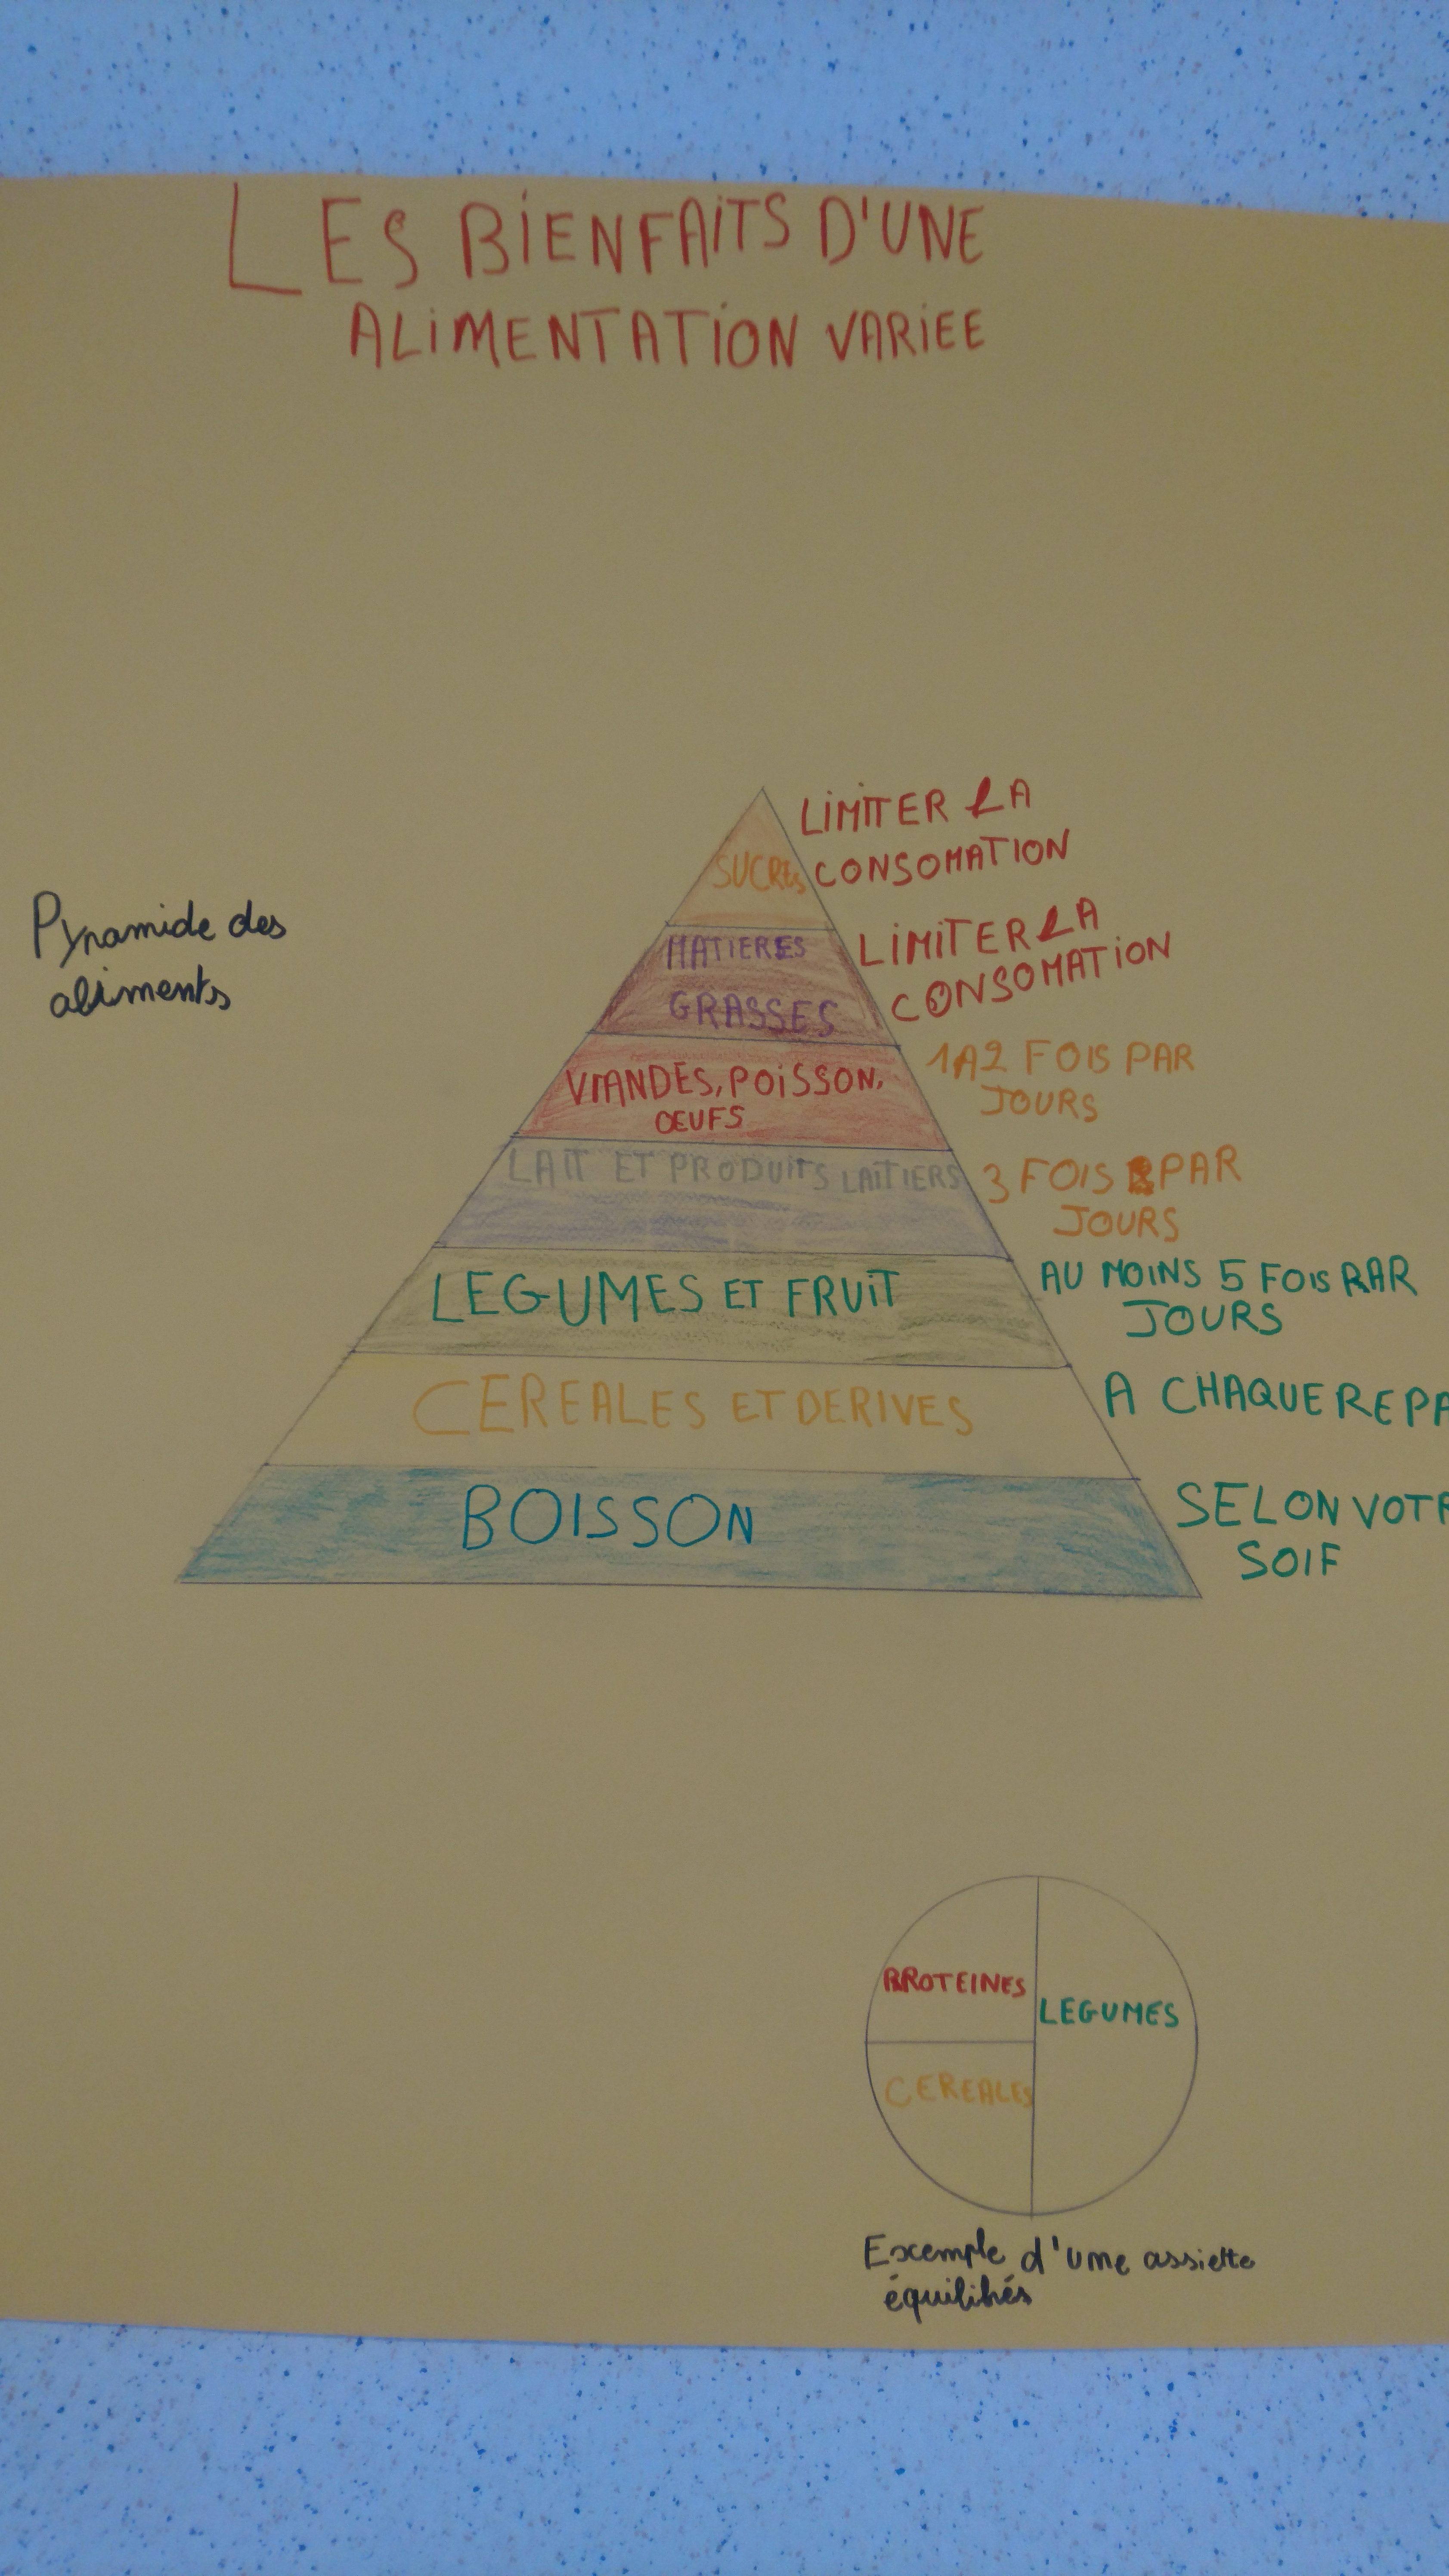 LES BIENFAITS D'UNE
ALIMENTATION VARIEE
LIMITER LA
SUCRES CONSOMATION
Pyramide des
aliments
LIMITER LA
CONSOMATION
MATIERES
GRASSES
1A2 FOIS PAR
JOURS
VIANDES, POISSON,
OEUFS
LAIT ET PRODUITS LAITIERS
3 FOIS PAR
JOURS
LEGUMES ET FRUIT
AU MOINS 5 FOIS PAR
JOURS
CEREALES ET DERIVES
A CHAQUE REPA
BOISSON
SELON VOTR
SOIF
PROTEINES
LEGUMES
CEREALES
Exemple d'une assiette
équilibrés